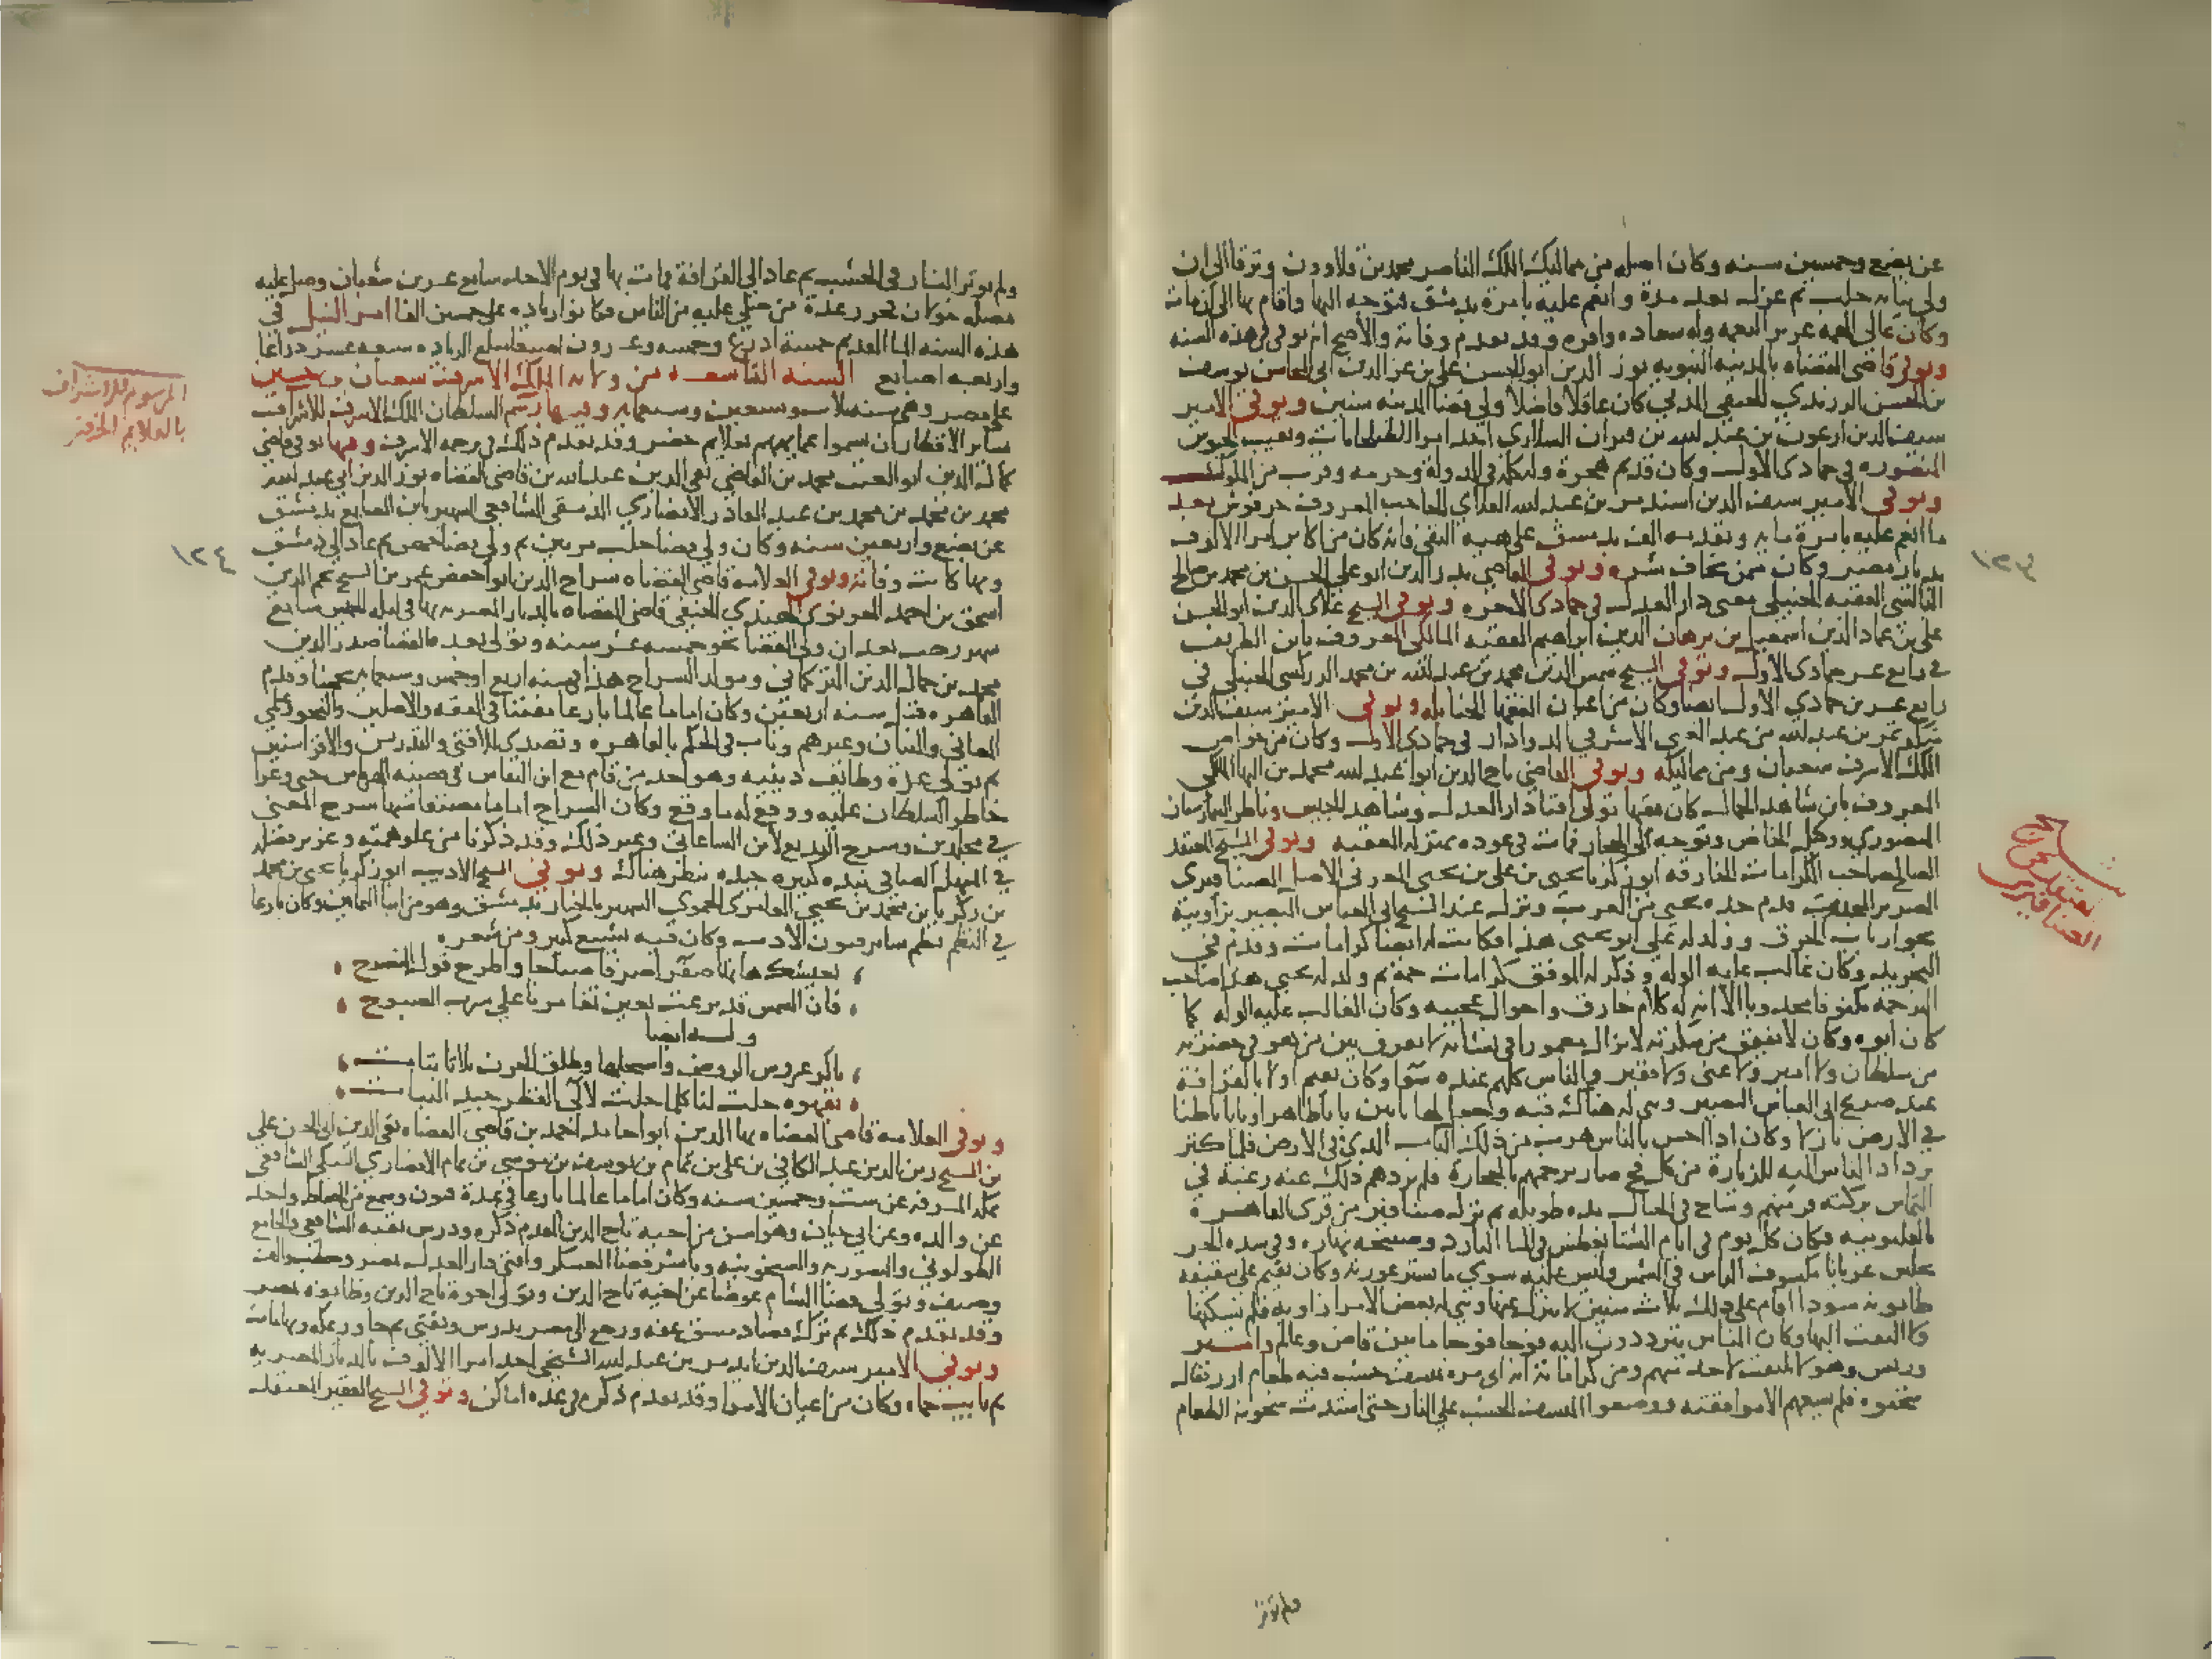 عن بضع وخمسين سنه وكان اصله من مماليك الملك الناصر محمد بن قلاوون وترقا الى ان
ولى نيابه حلب ثم عزل بعد مدة وانعم عليه بامرة بدمشق فتوجه اليها واقام بها الى ان مات
وكان عالى الهمه عزيز النعمه وله سعاده وافره وقد تقدم وفاته والاصح انه توفى فى هذه السنه
وتوفى قاضى القضاه بالمدينه النبويه نور الدين ابو الحسن على بن عز الدين ابى المحاسن يوسف
بن الحسن الزرندي الحنفي المدني كان عاقلا فاضلا ولي قضا المدينه سنين وتوفى الامير
سيف الدين ارغون بن عبد الله بن قيران السلاري احد امرا الطبلخانات ونقيب الجيوش
المنصوره في جمادى الاولى وكان قديم هجرة وله كلمه في الدولة وحرمه وقرب من الملوك
وتوفي الامير سيف الدين اسندمر بن عبد الله العلاي الحاجب المعروف حرفوش بعد
ما انعم عليه بامرة مايه وتقدمه الف بدمشق على هيه النفي فانه كان من اكابر امرا الالوف
بديار مصر وكان ممن يخاف شره وتوفى القاضي بدر الدين ابو علي الحسن بن محمد بن صالح
النابلسي الفقيه الحنبلي مفتي دار العدل في جمادى الاخره وتوفى الشيخ علاي الدين ابو الحسن
علي بن عماد الدين اسمعيل بن برهان الدين ابراهيم الفقيه المالكي المعروف بابن الظريف
في رابع عشر جمادى الاولى وتوفي الشيخ شمس الدين محمد بن عبد الله بن محمد الزركشي الحنبلي في
رابع عشرين جمادي الاولى ايضا وكان من اعيان الفقها الحنابله وتوفى الامير سيف الدين
منكوتمر بن عبد الله من عبد الغني الاشرفي الدوادار في جمادى الاولى وكان من خواص
الملك الاشرف شعبان ومن مماليكه وتوفى القاضي تاج الدين ابو عبد الله محمد بن البها المالكي
المعروف بابن شاهد الجمالي كان فقيها تولى افتا دار العدل وشاهد الجيش وناظر البيمارستان
المنصوري ووكيل الخاص وتوجه الى الحجاز فمات في عوده بمنزله العقبه وتوفى الشيخ المعتقد
الصالح صاحب الكرامات الخارقه ابو زكريا يحيى بن علي بن يحيى المغربي الاصل الصنافيري
الضرير المجذوب قدم جده يحيى من الغرب ونزل عند الشيخ ابي العباس البصير بزاويته
بجوار باب الخرق وولد له علي ابو يحيى هذا فكانت له ايضا كرامات وقدم في
التجريد وكان غالب عليه الوله وذكر له الموفق كرامات جمه ثم ولد له يحيى هذا صاحب
الترجمه مكفوفا مجذوبا الا انه له كلام خارق واحوال عجيبه وكان الغالب عليه الوله كما
كان ابوه وكان لا يفيق من سكرته لا يزال مغمورا في نشاته لا يفرق بين من هو في حضرته
من سلطان ولا امير ولا غني ولا فقير والناس كلهم عنده سوا وكان يقيم اولا بالقرافة
عند ضريح ابي العباس البصير وبني له هناك قبه وجعل لها بابين بابا ظاهرا وبابا باطنا
في الارض نازلا وكان اذا احس بالناس هرب من ذلك الباب الذي في الارض فلما كثر
ترداد الناس اليه للزيارة من كل فج صار يرجمهم بالحجارة فلم يردهم ذلك عنه رغبة في
التماس بركته ففر منهم وساح في الجبال مده طويله ثم نزل صنافير من قرى القاهرة
بالقليوبيه فكان كل يوم في ايام الشتا يغطس في الما البارد وصبيحه نهاره وفي شده الحر
يجلس عريانا مكشوف الراس في الشمس وليس عليه سوى ما يستر عورته وكان يقيم على سقيفه
طابونه سودا اقام على ذلك ثلاث سنين لا ينزل عنها وبني له بعض الامرا زاويه فلم يسكنها
ولا التفت اليها وكان الناس يترددون اليه فوجا فوجا ما بين قاض وعالم وامير
وريس وهو لا يلتفت لاحد منهم ومن كراماته انه اتى مره بمنسف خشب فيه طعام ارز فقال
سخنوه فلم يسعهم الا موافقته ووضعوا المنسف الخشب علي النار حتى اشتدت سخونه الطعام
ولم توثر
شيخ
معتقد يحيى
الصنافيري
١٢٤
ولم توثر النار في الخشب ثم عاد الي القرافة فمات بها في يوم الاحد سابع عشرين شعبان وصلي عليه
بمصلى خولان فحزر عدة من صلي عليه من الناس فكانوا زياده على خمسين الفا امر النيل في
هذه السنه الما القديم خمسة اذرع وخمسه وعشرون اصبعا مبلغ الزياده سبعه عشر ذراعا
واربعه اصابع السنه التاسعه من ولايه الملك الاشرف شعبان بن حسين
على مصر وهي سنه ثلاث وسبعين وسبعمايه وفيها رسم السلطان الملك الاشرف للاشراف
بساير الاقطار ان يسموا عمايمهم بعلايم خضر وقد تقدم ذلك في ترجمه الاشرف وفيها توفى قاضي
كمال الدين ابو الغيث محمد بن القاضي تقي الدين عبد الله بن قاضي القضاه نور الدين ابي عبد الله
محمد بن محمد بن محمد بن عبد القادر الانصاري الدمشقي الشافعي الشهير بابن الصايغ بدمشق
عن بضع واربعين سنه وكان ولي قضا حلب مرتين ثم ولي قضا حمص ثم عاد الي دمشق
وبها كانت وفاته وتوفى العلامه قاضي القضاه سراج الدين ابو حفص عمر بن الشيخ نجم الدين
اسحق بن احمد الغزنوي الهندي الحنفي قاضي القضاه بالديار المصريه بها في ليله الخميس سابع
شهر رجب بعد ان ولي القضا نحو خمسه عشر سنه وتولى بعده القضا صدر الدين
محمد بن جمال الدين التركماني ومولد السراج هذا في سنه اربع او خمس وسبعمايه تخمينا وقدم
القاهره قبل سنه اربعين وكان اماما عالما بارعا مفتنا في الفقه والاصلين والنحو وعلمي
المعاني والبيان وغيرهم وناب في الحكم بالقاهره وتصدى للافتي والتدريس والاقرا سنين
ثم تولى عدة وظايف دينيه وهو احد من قام مع ابن النقاش في قضيه الهرماس حتى وغرا
خاطر السلطان عليه ووقع له ما وقع وكان السراج اماما مصنفا منها شرح المغني
في مجلدين وشرح البديع لابن الساعاتي وغير ذلك وقد ذكرنا من علو همته وغزير فضله
في المنهل الصافي نبذه كبيره جيده ينظر هناك وتوفى الشيخ الاديب ابو زكريا يحيى بن محمد
بن زكريا بن محمد بن يحيي العامري الحموي الشهير بالخباز بدمشق وهو من ابنا الثمانين وكان بارعا
في النظم نظم ساير فنون الادب وكان فيه تشيع كبير ومن شعره
بعيشك هاتها صفرا صرفا صباحا واطرح قول النصوح
فان الشمس قد بزغت بعين تغامزنا علي شرب الصبوح
وله ايضا
باكر عروس الروض واستجلها وطلق الحزن ثلاثا بتات
بقهوه حلت لنا كلما حلت لآلي القطر جيد النبات
وتوفى العلامة قاضي القضاه بها الدين ابو احامد احمد بن قاضي القضاه تقي الدين ابي الحسن علي
بن الشيخ زين الدين عبد الكافي بن علي بن تمام بن يوسف بن موسى بن تمام الانصاري السبكي الشافعي
بمكه المشرفه عن ست وخمسين سنه وكان اماما عالما بارعا في عدة فنون وسمع من الحفاظ واخذ
عن والده وعن ابي حيان وهو اسن من اخيه تاج الدين المقدم ذكره ودرس بقبه الشافعي والجامع
الطولوني والمنصوريه والشيخونيه وباشر قضا العسكر وافتى دار العدل بمصر وخطب والف
وصنف وتولي قضا الشام عوضا عن اخيه تاج الدين وتولى اخوه تاج الدين وظايفه بمصر
وقد تقدم ذلك ثم ترك قضا دمشق عفه ورجع الى مصر يدرس ويفتي ثم جاور بمكه وبها مات
وتوفى الامير سيف الدين ايدمر بن عبد الله الشيخي احد امرا الالوف بالديار المصريه
ثم نايب حماه وكان من اعيان الامرا وقد تقدم ذكره في عده اماكن وتوفى الشيخ الفقير المعتقد
المرسوم للاشراف
بالعلايم الخضر
١٢٤